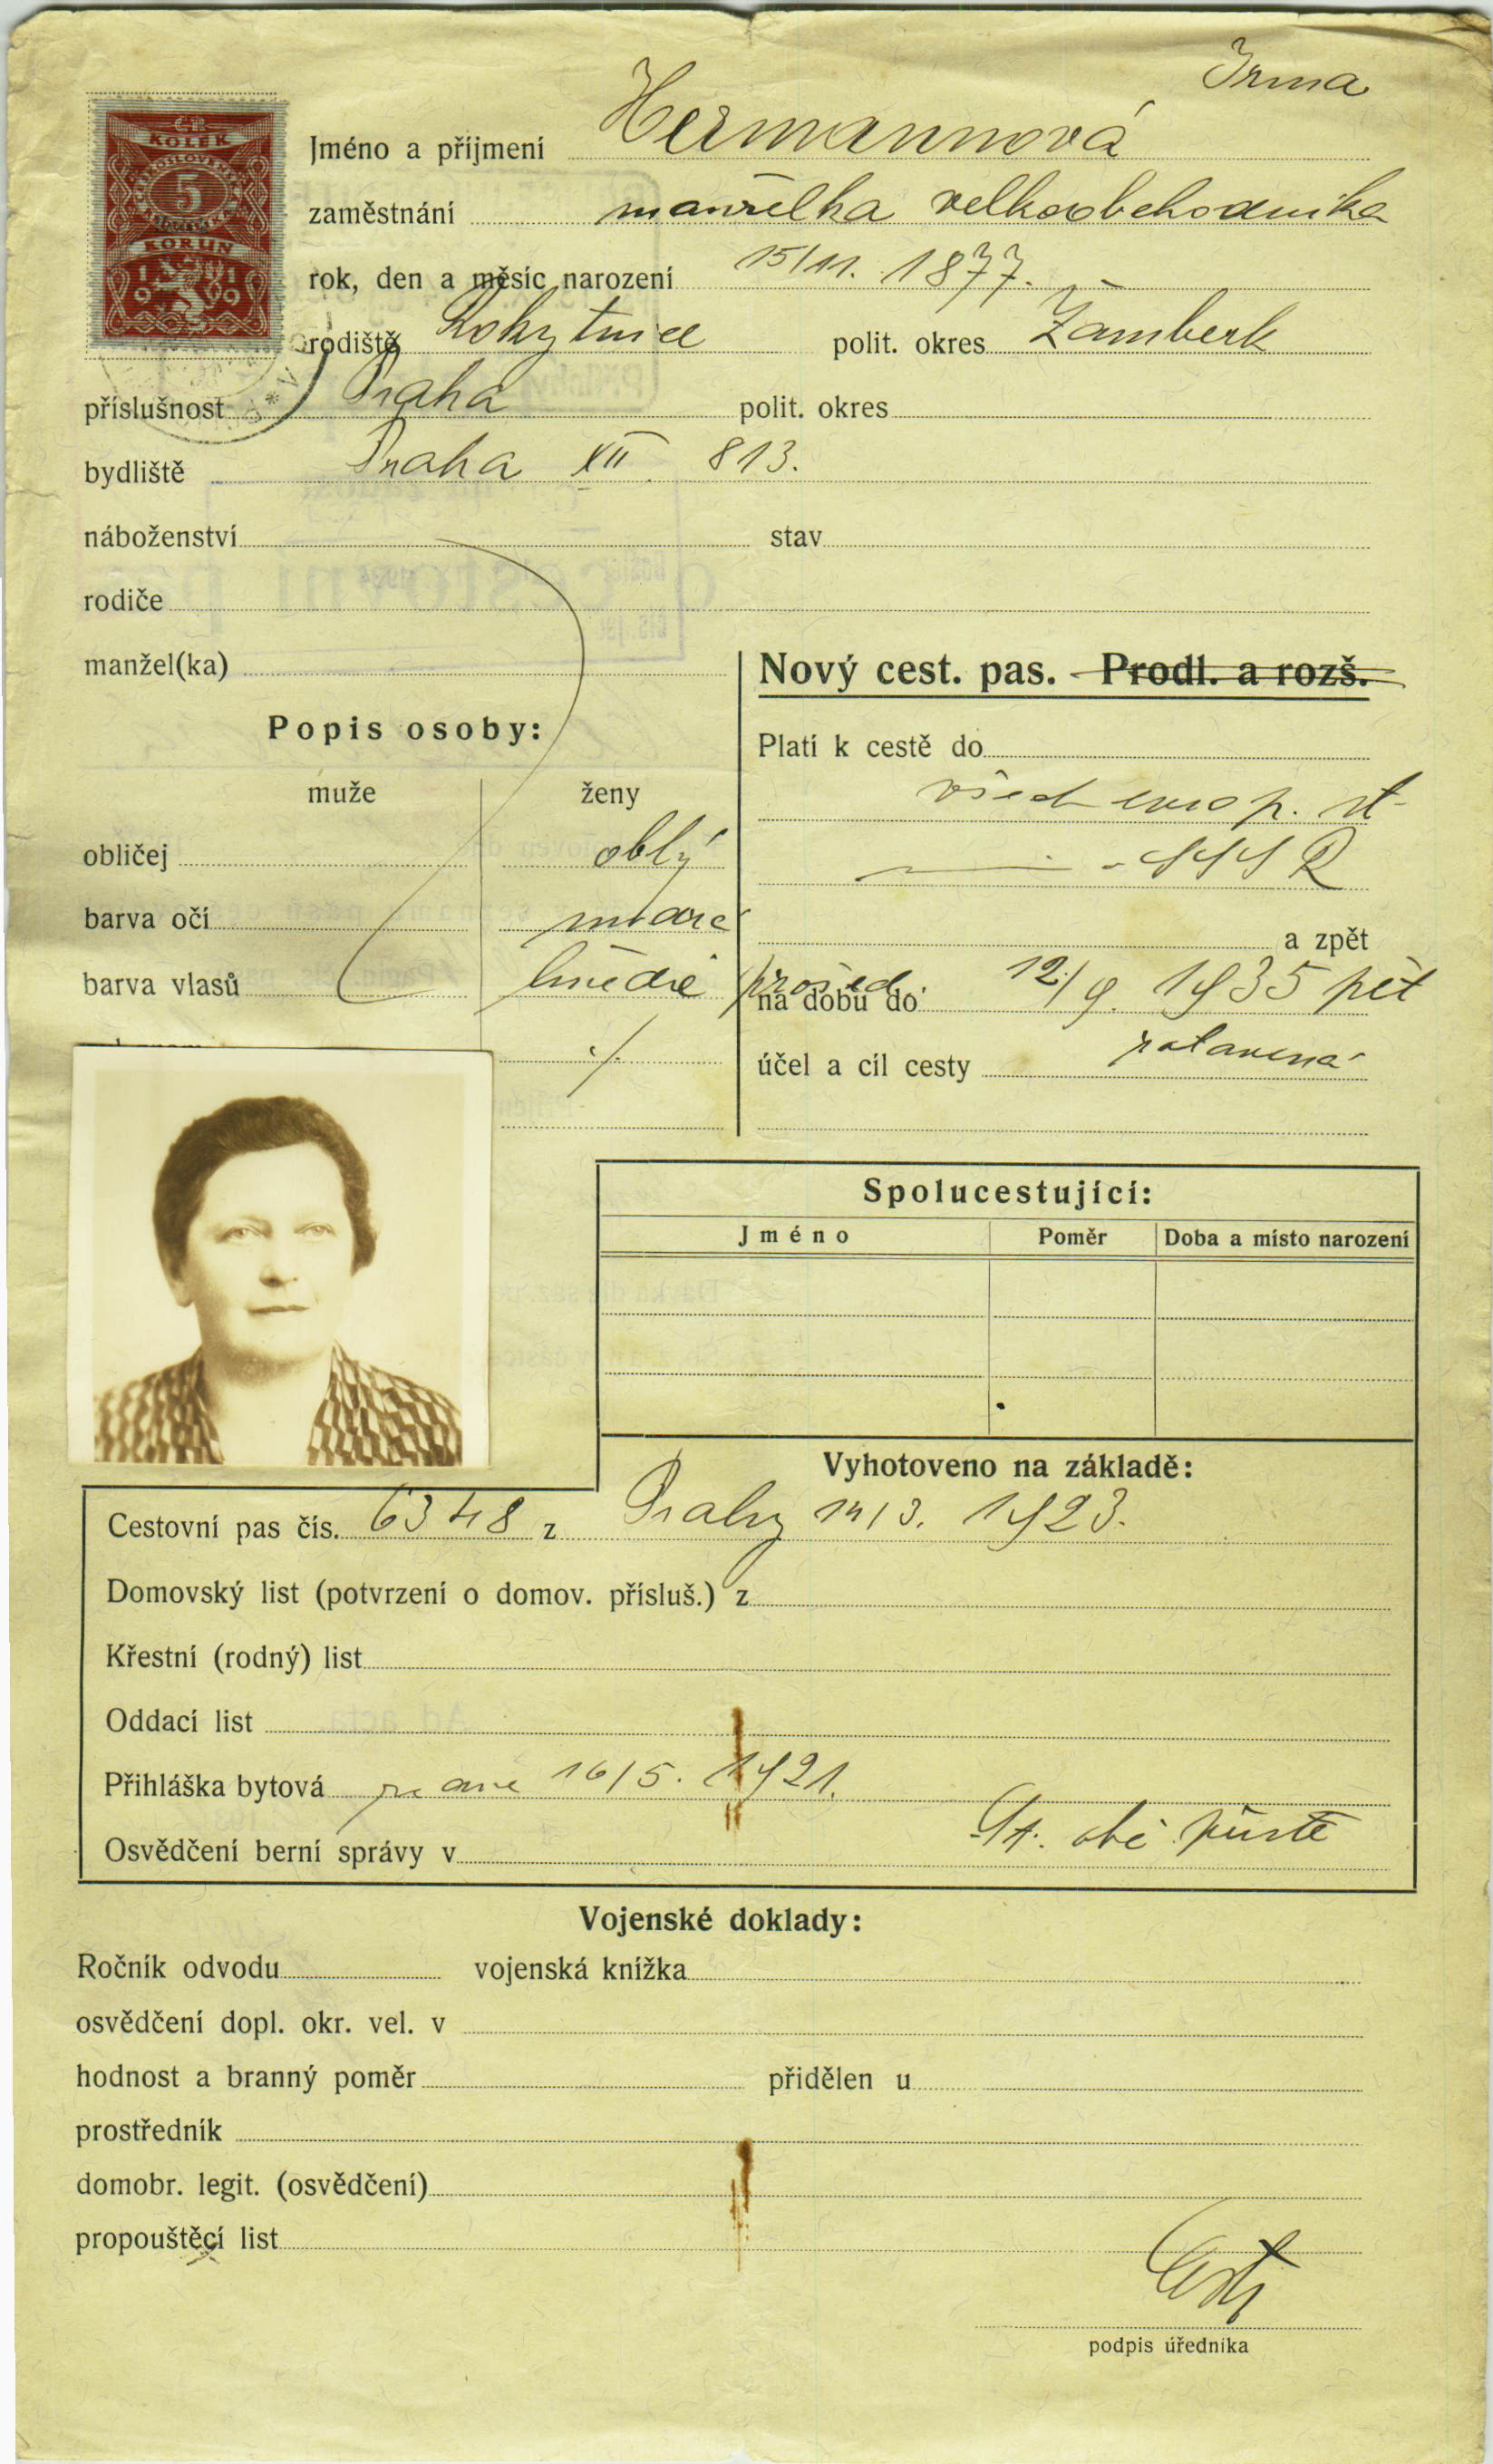 Irma
KOLEK
5
KORUN
1919
Jméno a příjmení Hermannová
zaměstnání manželka velkoobchodníka
rok, den a měsíc narození 15/11. 1877.
rodiště Rokytnice polit. okres Žamberk
příslušnost Praha polit. okres
bydliště Praha XII 813.
náboženství stav
rodiče
manžel(ka)
Nový cest. pas. Prodl. a rozš.
Popis osoby:
Platí k cestě do
muže ženy
všech evrop. st
obličej oblý
- SSSR
barva očí modré
a zpět
barva vlasů hnědé prošed.
na dobu do 12/9. 1935 pět
./.
účel a cíl cesty
Spolucestující:
Jméno Poměr Doba a místo narození
Vyhotoveno na základě:
Cestovní pas čís. 6348 z Prahy 14/3. 1923.
Domovský list (potvrzení o domov. přísluš.) z
Křestní (rodný) list
Oddací list
Přihláška bytová ze dne 16/5. 1921.
Osvědčení berní správy v
Vojenské doklady:
Ročník odvodu vojenská knížka
osvědčení dopl. okr. vel. v
hodnost a branný poměr přidělen u
prostředník
domobr. legit. (osvědčení)
propouštěcí list
podpis úředníka